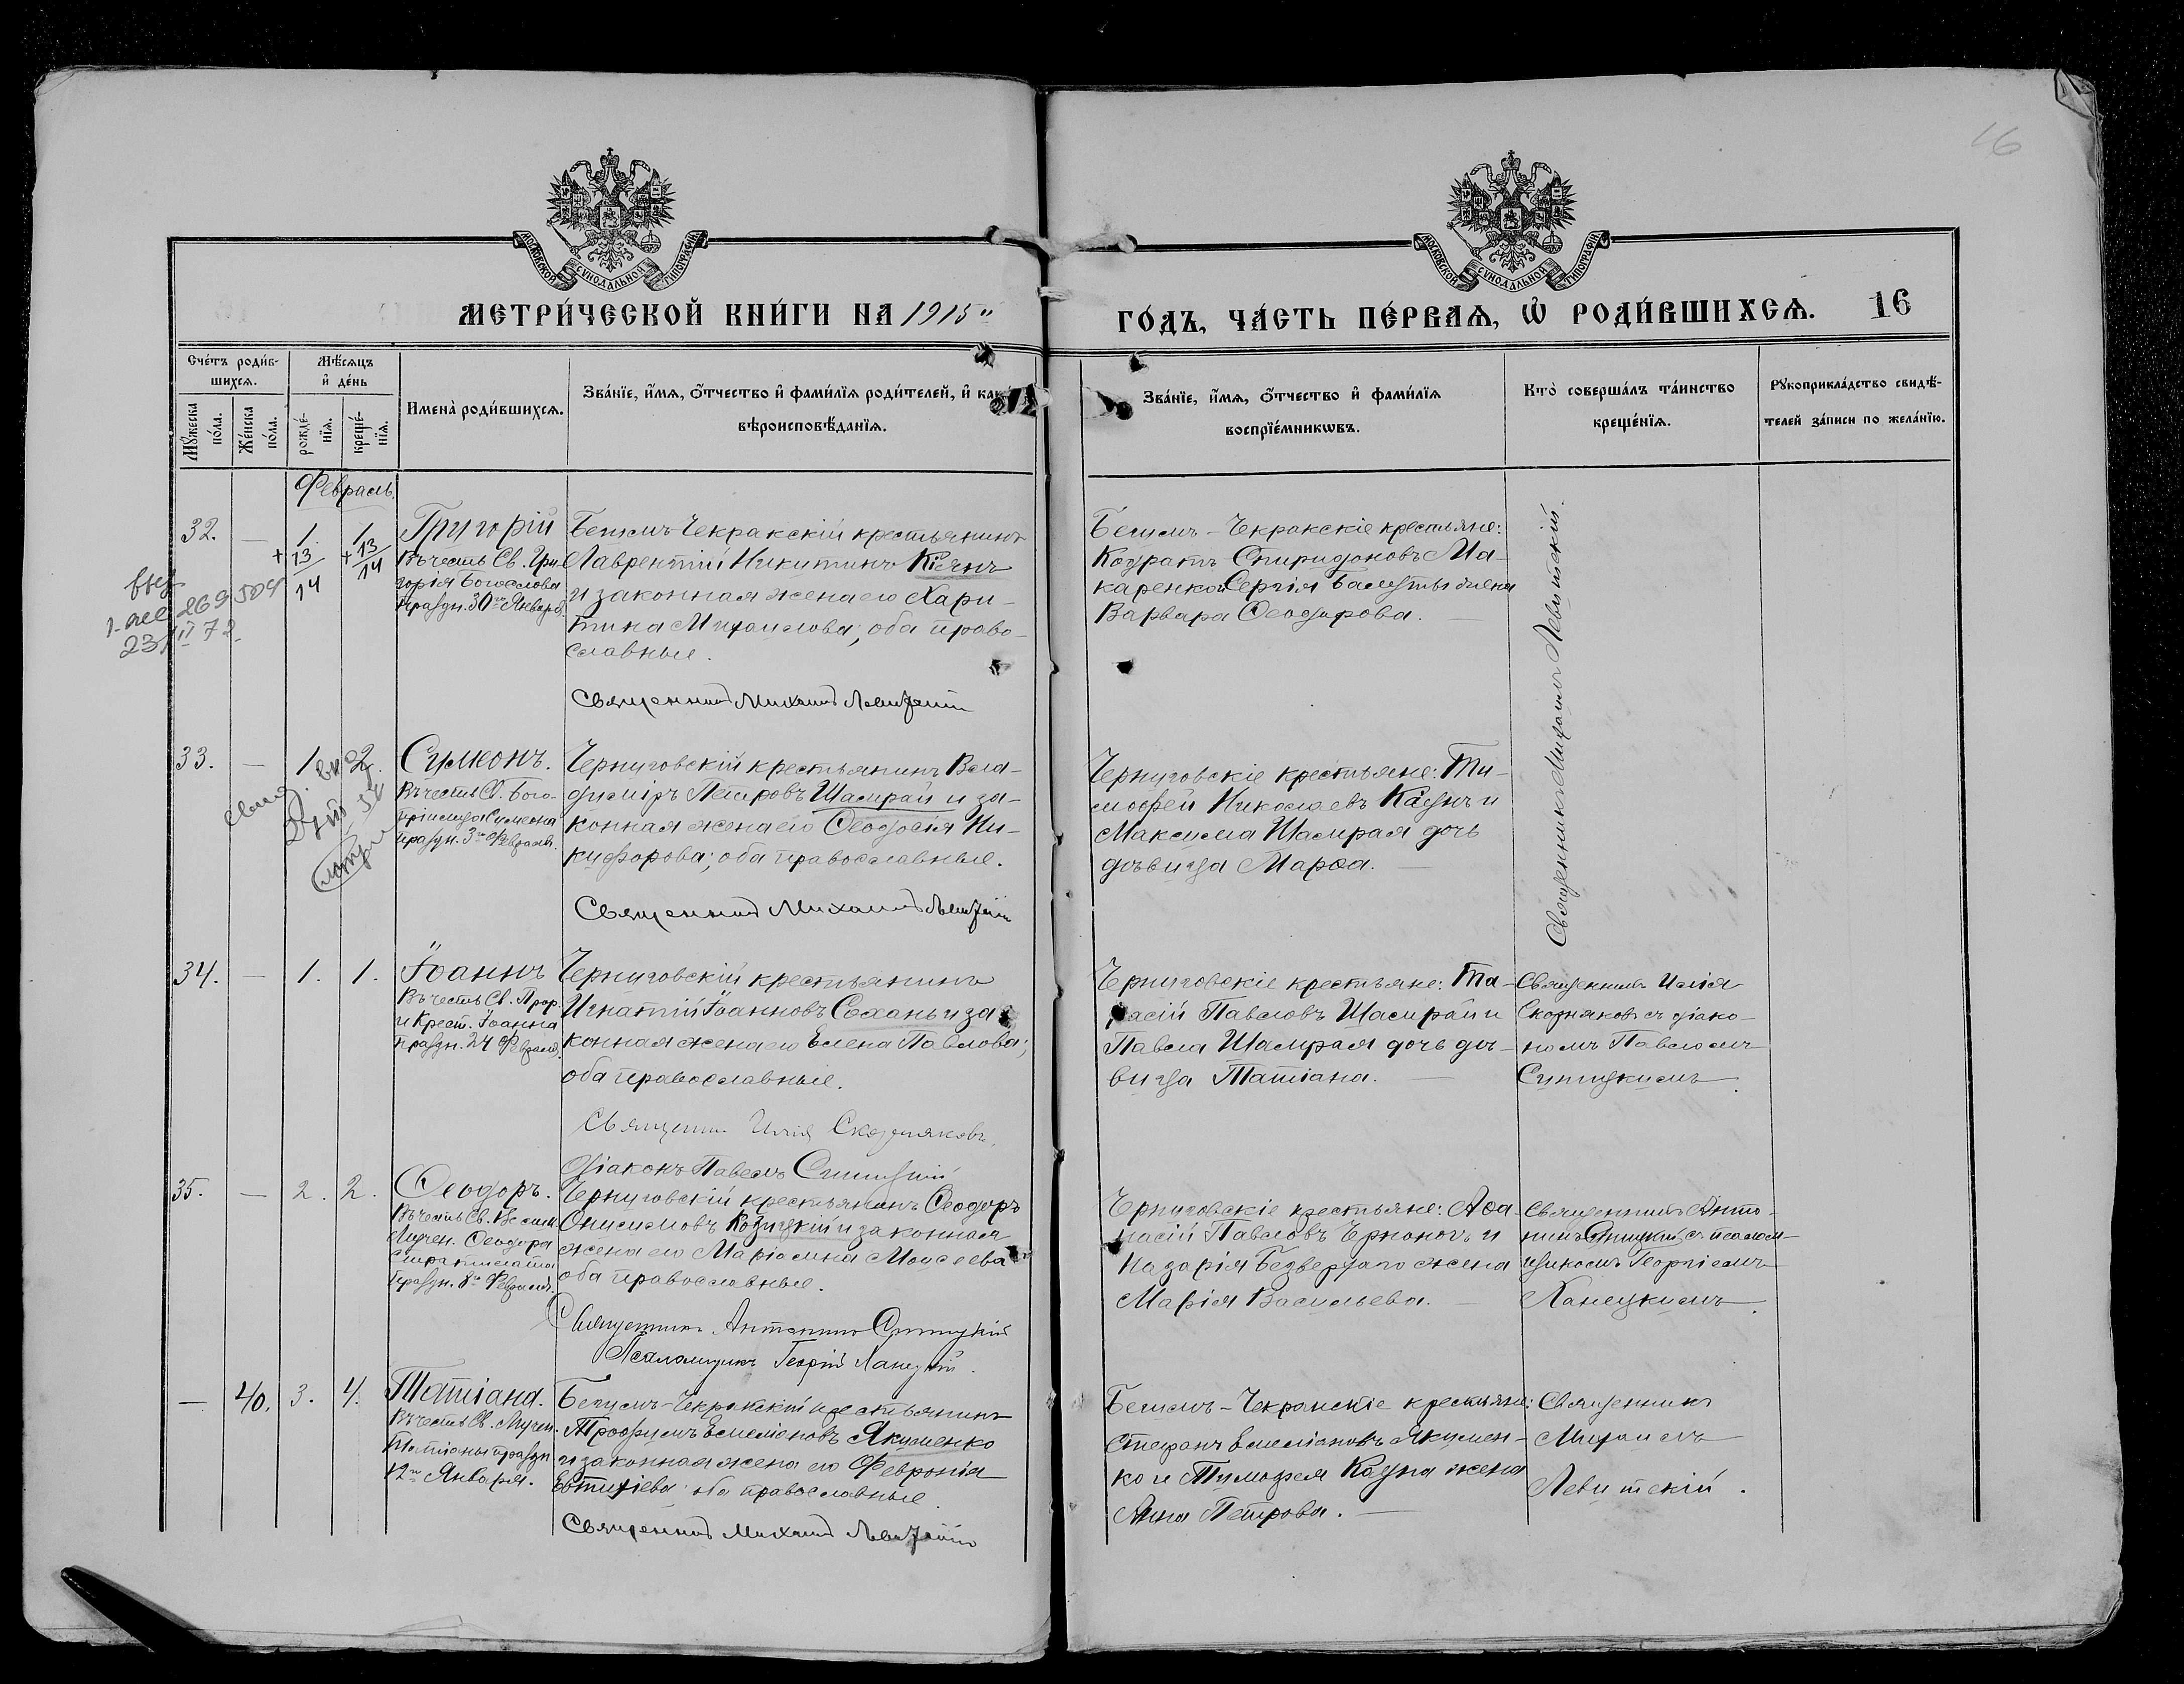 16
МОСКОВСКОЙ СѴНОДАЛЬНОЙ ТИПОГРАФІИ
МОСКОВСКОЙ СѴНОДАЛЬНОЙ ТИПОГРАФІИ
МЕТРИ́ЧЕСКОЙ КНИ́ГИ НА 1915
ГО́ДЪ, ЧА́СТЬ ПЕ́РВАѦ, Ѽ РОДИ́ВШИХСѦ. 16
Сче́тъ роди́в-
шихсѧ.
Мѣ́сѧцъ
и҆ де́нь
Мꙋ́жеска
по́ла.
Же́нска
по́ла.
рожде́-
нїѧ.
креще́-
нїѧ.
Имена̀ роди́вшихсѧ.
Зва́нїе, и҆́мѧ, ѻ҆́тчество и҆ фами́лїѧ роди́телей, и҆ како́
вѣроисповѣ́данїѧ.
Зва́нїе, и҆́мѧ, ѻ҆́тчество и҆ фами́лїѧ
воспрїе́мникѡвъ.
Кто̀ соверша́лъ та́инство
креще́нїѧ.
Рꙋкоприкла́дство свидѣ́-
телей за́писи по жела́нїю.
Февраль.
32. — 1. 1.
+ 13/14 + 13/14
269 504
23/II 72
Григорій
Въ честь Св. Гри-
горія Богослова
праздн. 30го Января.
Бегимъ-Чекракскій крестьянинъ
Лаврентій Никитинъ Кіянъ
и законная жена его Хари-
тина Михаилова; оба право-
славные.
Священникъ Михаилъ Левитскій
Бегимъ-Чекракскіе крестьяне:
Кодратъ Спиридоновъ Ма-
каренко и Сергія жена
Варвара Ѳеодорова. —
Священникъ Михаилъ Левитскій.
33. — 1. 2.
Сѵмеонъ.
Въ честь Св. Бого-
пріимца Сѵмеона
праздн. 3го Февраля.
Черниговскій крестьянинъ Вла-
диміръ Петровъ Шамрай и за-
конная жена его Ѳеодосія Ни-
кифорова; оба православные.
Священникъ Михаилъ Левитскій
Черниговскіе крестьяне: Ти-
моѳей Николаевъ Каунъ и
Максима Шамрая дочь
дѣвица Марѳа. —
34. — 1. 1.
Іоаннъ
Въ честь Св. Прор.
и Крест. Іоанна
праздн. 24 Февраля.
Черниговскій крестьянинъ
Игнатій Іоанновъ Сохань и за-
конная жена его Елена Павлова;
оба православные.
Священникъ Илія Скорняковъ,
Діаконъ Павелъ Синицкій
Черниговскіе крестьяне: Та-
расій Павловъ Шамрай и
Павла Шамрая дочь дѣ-
вица Татіана. —
Священникъ Илія
Скорняковъ съ діако-
номъ Павломъ
Синицкимъ.
35. — 2. 2.
Ѳеодоръ.
Въ честь Св. Велик.
Мучен. Ѳеодора
Стратилата
праздн. 8го Февраля.
Черниговскій крестьянинъ Ѳеодоръ
Онисимовъ Козицкій и законная
жена его Маріамна Моисеева
оба православные.
Священникъ Антонинъ Синицкій
Псаломщикъ Георгій Ханецкій.
Черниговскіе крестьяне: Аѳа-
насій Павловъ и
Назарія Безверхаго жена
Марія Васильева. —
Священникъ Анто-
нинъ Синицкій съ псалом-
щикомъ Георгіемъ
Ханецкимъ.
— 40. 3. 4.
Татіана.
Въ честь Св. Мучен.
Татіаны праздн.
12го Января.
Бегимъ-Чекракскій крестьянинъ
Трофимъ Емеліановъ Якименко
и законная жена его Февронія
Евтихіева оба православные.
Священникъ Михаилъ Левитскій
Бегимъ-Чекракскіе крестьяне:
Стефанъ Емеліановъ Якимен-
ко и Тимоѳея Кауна жена
Анна Петрова. —
Священникъ
Михаилъ
Левитскій.